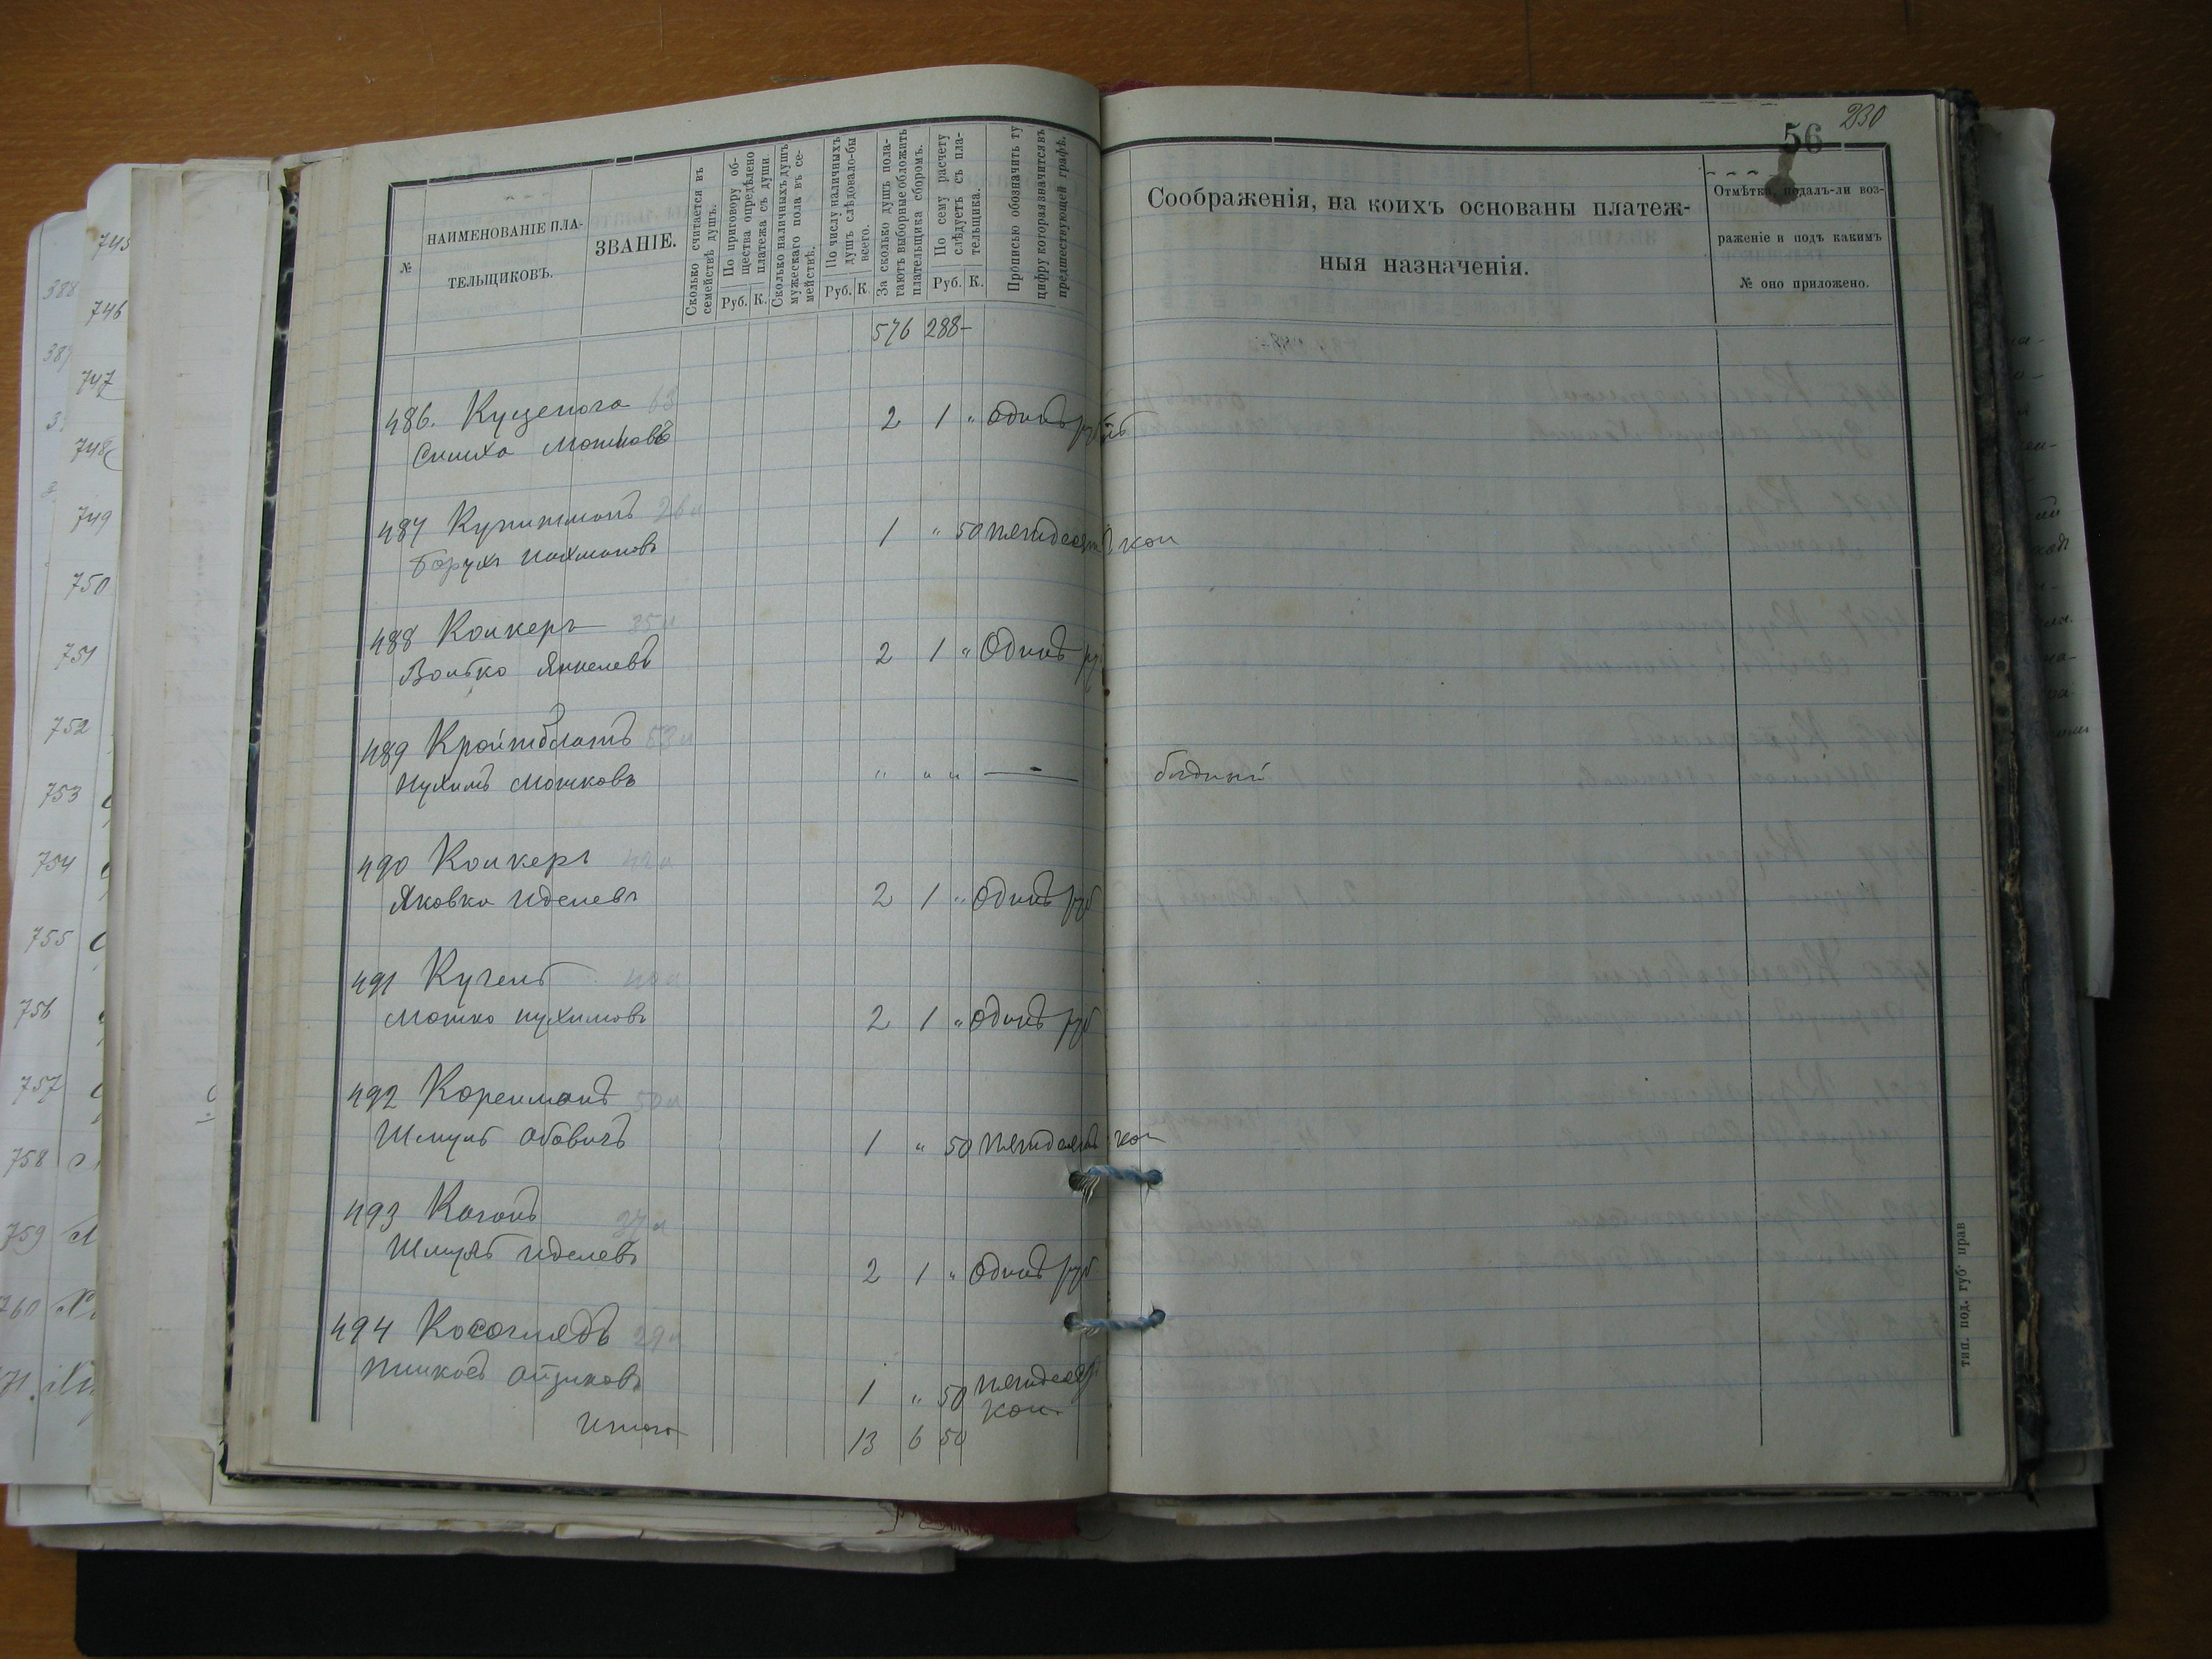 230
56
№
НАИМЕНОВАНІЕ ПЛА-
ТЕЛЬЩИКОВЪ.
ЗВАНІЕ.
Сколько считается въ
семействѣ душъ.
По приговору об-
щества опредѣлено
платежа съ души.
Руб. К.
Сколько наличныхъ душъ
мужескаго пола въ се-
мействѣ.
По числу наличныхъ
душъ слѣдовало-бы
всего.
Руб. К.
За сколько душъ пола-
гаютъ выборные обложить
плательщика сборомъ.
По сему расчету
слѣдуетъ съ пла-
тельщика.
Руб. К.
Прописью обозначить ту
цифру которая значится въ
предшествующей графѣ.
Соображенія, на коихъ основаны платеж-
ныя назначенія.
Отмѣтка, подалъ-ли воз-
раженіе и подъ какимъ
№ оно приложено.
576 288 -
486. Куценога 63
Симха Мошковъ 2 1 " Одинъ рубль
487 Купитманъ 26 л
Борухъ Нахмановъ 1 " 50 пятдесятъ коп
488 Колкеръ 35 л
Волько Янкелевъ 2 1 " Одинъ ру
489 Кройтблатъ 52 л
Нухимъ Мошковъ " " " — бѣдный
490 Колкеръ 42 л
Яковко Иделевъ 2 1 " Одинъ руб
491 Кучель 40 л
Мошко Нухимовъ 2 1 " Одинъ руб
492 Коренманъ 50 л
Шмуль Абовичъ 1 " 50 пятдесятъ коп
493 Коганъ 37 л
Шмуль Иделевъ 2 1 " Одинъ руб
494 Косоглядъ 29 л
Пинкосъ Айзиковъ 1 " 50 пятдесят
коп.
Итого 13 6 50
тип. под. губ. прав
745
746
747
748
749
750
751
752
753
754
755
756
757
758
759
760
388
389